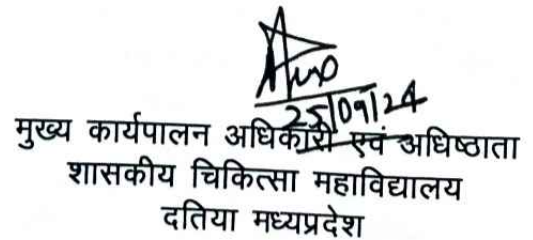 25/09/24
मुख्य कार्यपालन अधिकारी एवं अधिष्ठाता
शासकीय चिकित्सा महाविद्यालय
दतिया मध्यप्रदेश